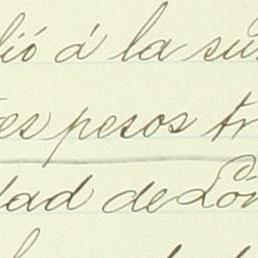 lió á la su
es pesos tr
dad de Lón